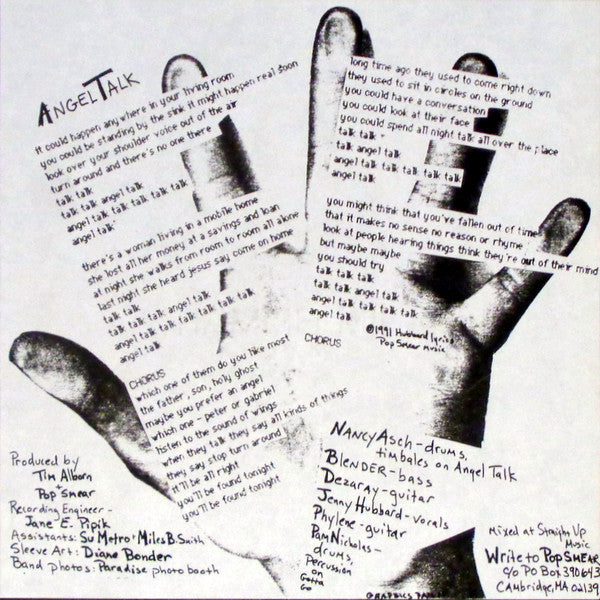 ANGEL TALK
it could happen anywhere in your living room
you could be standing by the sink it might happen real soon
look over your shoulder voice out of the air
turn around and there's no one there
talk talk
talk talk angel talk
angel talk talk talk talk talk
angel talk
there's a woman living in a mobile home
she lost all her money at a savings and loan
at night she walks from room to room all alone
last night she heard jesus say come on home
talk talk
talk talk talk angel talk
angel talk talk talk talk talk talk
angel talk
CHORUS
which one of them do you like most
the father, son, holy ghost
maybe you prefer an angel
which one - peter or gabriel
listen to the sound of wings
when they talk they say all kinds of things
they say stop turn around
it'll be all right
you'll be found tonight
you'll be found tonight
long time ago they used to come right down
they used to sit in circles on the ground
you could have a conversation
you could look at their face
you could spend all night talk all over the place
talk talk -
talk angel talk
angel talk talk talk talk talk
angel talk
you might think that you've fallen out of time
that it makes no sense no reason or rhyme
look at people hearing things think they're out of their mind
but maybe maybe
you should try
talk talk talk
talk talk angel talk
angel talk talk talk talk talk
angel talk
©1991 Hubbard lyrics
Pop Smear Music
CHORUS
Produced by
Tim Alborn
+
Pop Smear
Recording Engineer -
Jane E. Pipik
Assistants: Su Metro + Miles B. Smith
Sleeve Art: Diane Bonder
Band photos: Paradise photo booth
NANCY ASCH - drums,
timbales on Angel Talk
BLENDER - bass
Dezaray - guitar
Jenny Hubbard - vocals
Phylene - guitar
Pam Nicholas -
drums,
percussion
on
Gotta
Go
Mixed at Straight Up
Music
Write to POP SMEAR
c/o PO Box 390643
CAmbridge, MA 02139
GRAPHICS